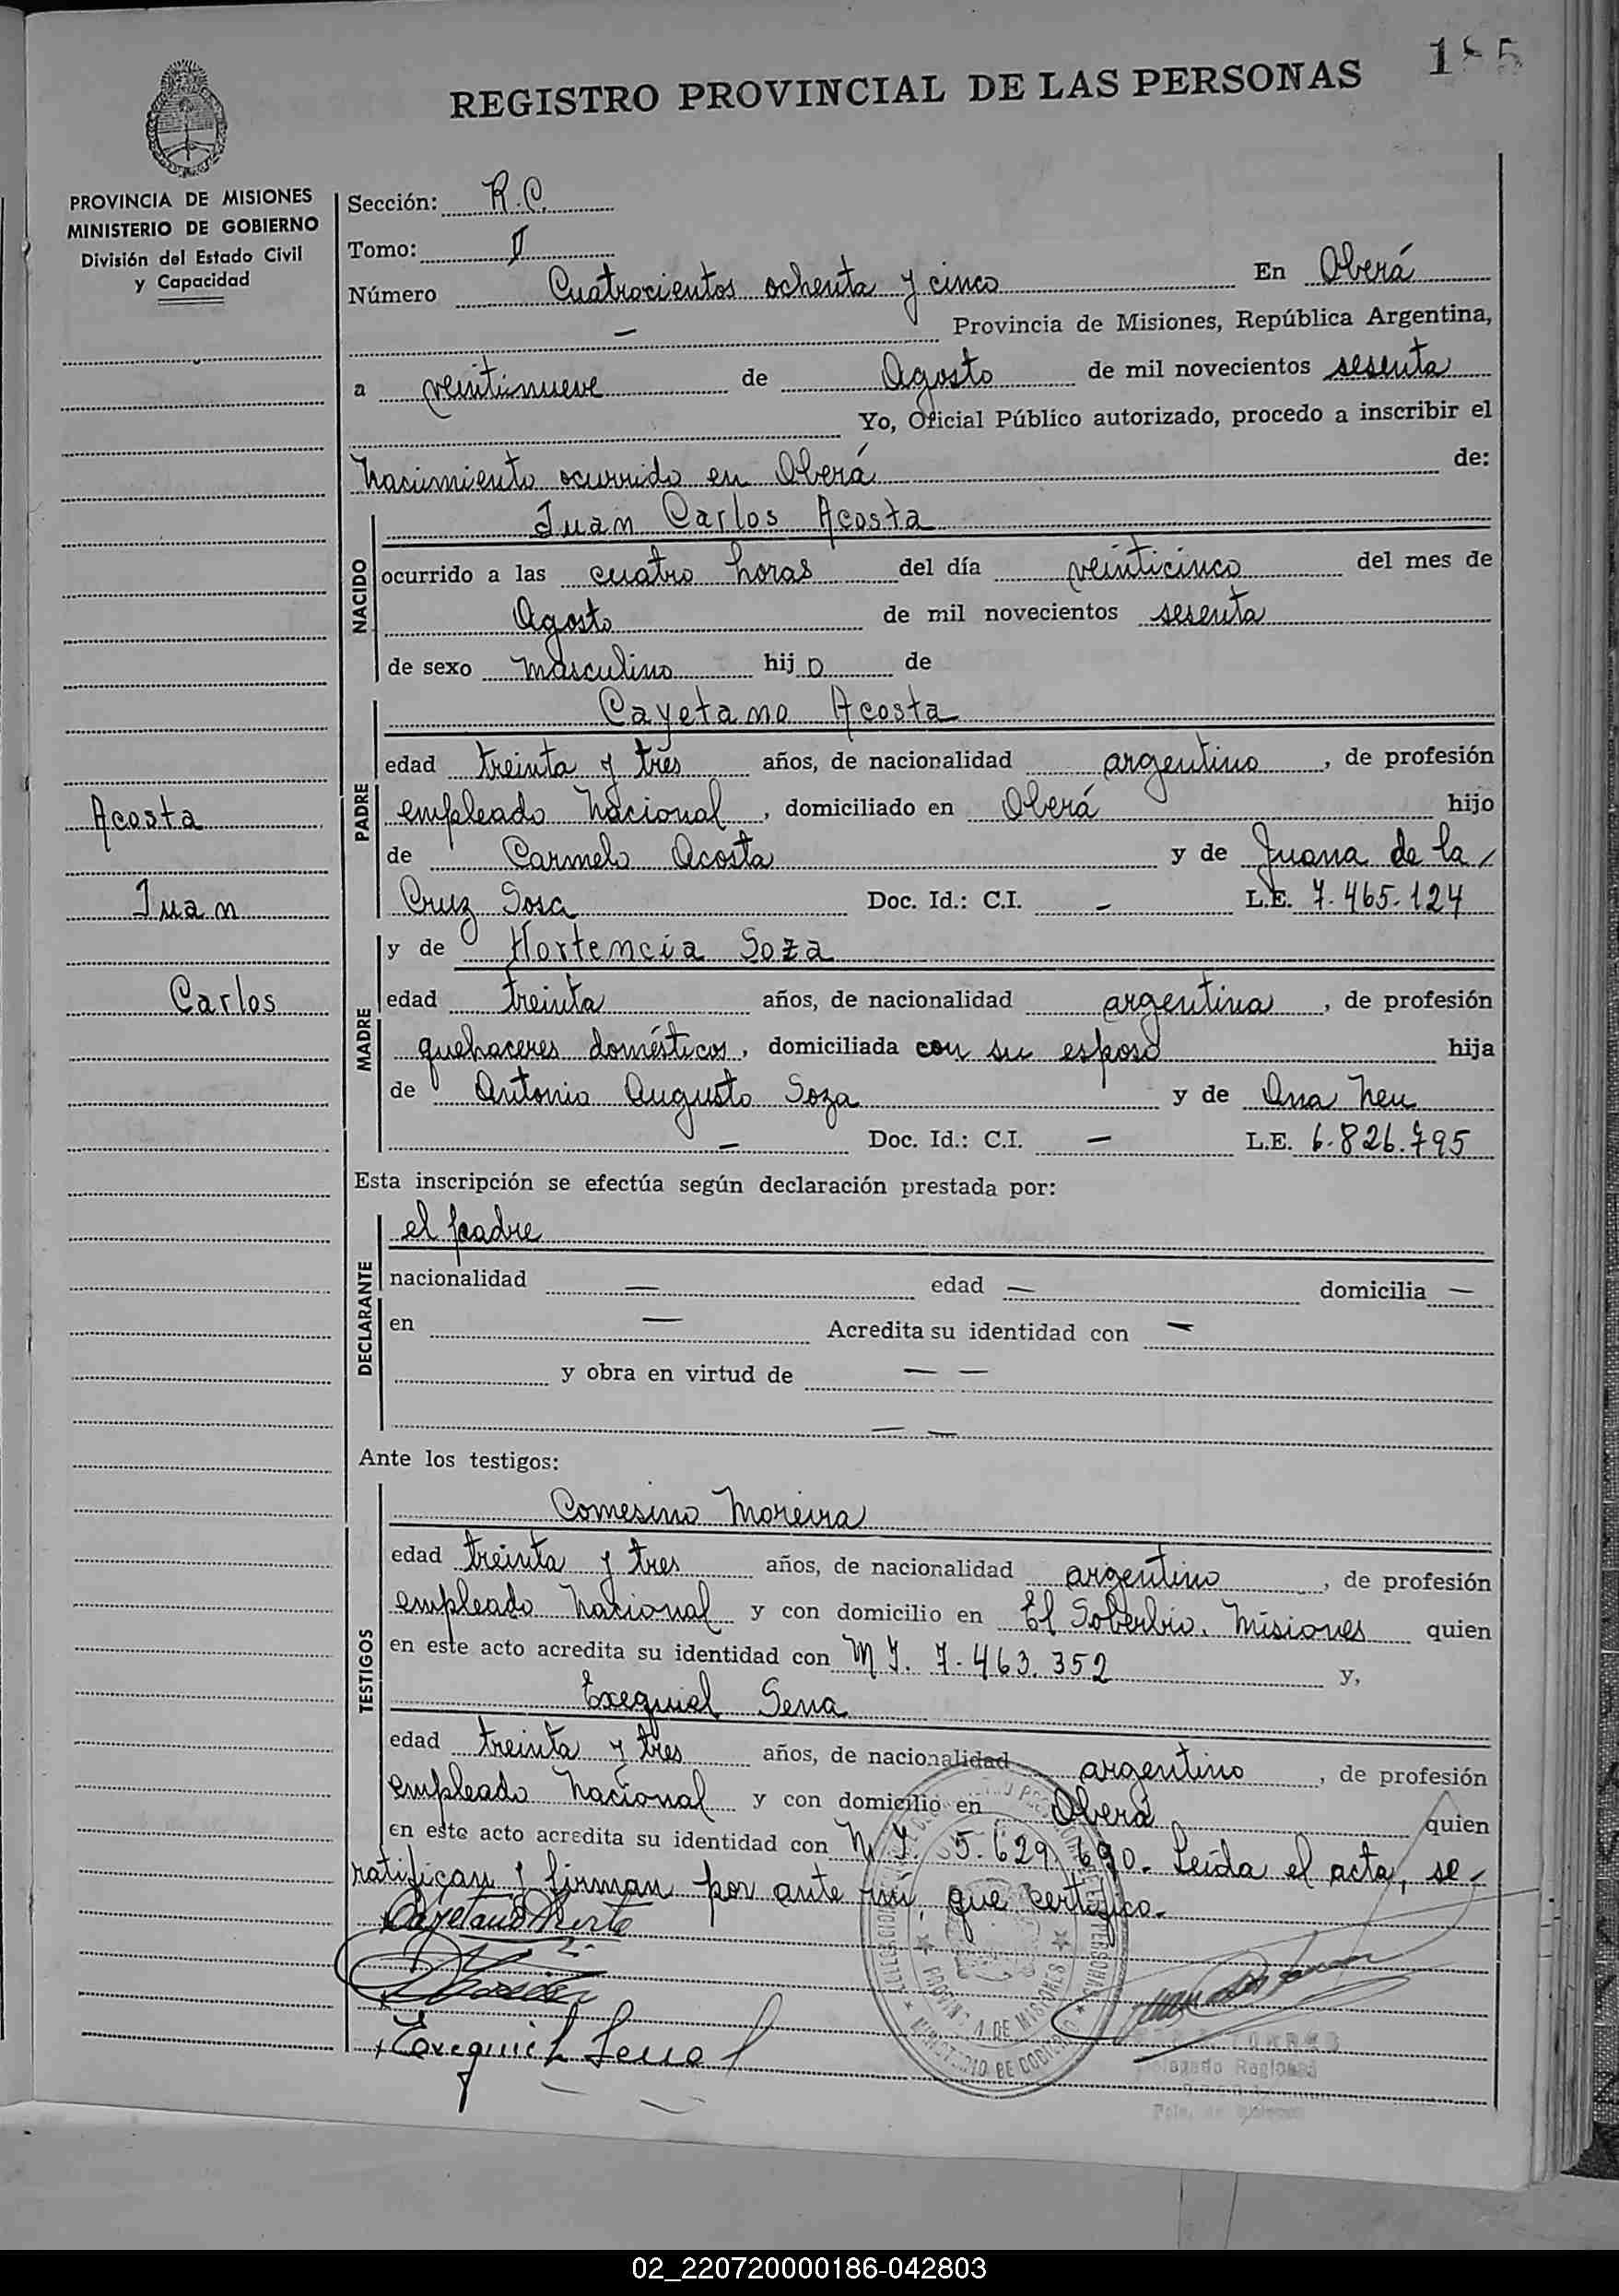 REGISTRO PROVINCIAL DE LAS PERSONAS
PROVINCIA DE MISIONES
MINISTERIO DE GOBIERNO
División del Estado Civil
y Capacidad
Sección: R.C.
Tomo: II
Número Cuatrocientos ochenta y cinco En Oberá
— Provincia de Misiones, República Argentina,
a veintinueve de Agosto de mil novecientos sesenta
Yo, Oficial Público autorizado, procedo a inscribir el
Nacimiento ocurrido en Oberá de:
NACIDO
Juan Carlos Acosta
ocurrido a las cuatro horas del día veinticinco del mes de
Agosto de mil novecientos sesenta
de sexo masculino hijo de
PADRE
Cayetano Acosta
edad treinta y tres años, de nacionalidad argentino, de profesión
empleado Nacional, domiciliado en Oberá hijo
de Carmelo Acosta y de Juana de la
Cruz Sosa Doc. Id.: C.I. — L.E. 7.465.124
Acosta
Juan
Carlos
MADRE
y de Hortencia Soza
edad treinta años, de nacionalidad argentina, de profesión
quehaceres domésticos, domiciliada con su esposo hija
de Antonio Augusto Soza y de Ana Neu
— Doc. Id.: C.I. — L.E. 6.826.795
Esta inscripción se efectúa según declaración prestada por:
DECLARANTE
el padre
nacionalidad — edad — domicilia —
en — Acredita su identidad con —
y obra en virtud de — —
— —
Ante los testigos:
TESTIGOS
Comesino Moreira
edad treinta y tres años, de nacionalidad argentino, de profesión
empleado Nacional y con domicilio en El Soberbio. Misiones quien
en este acto acredita su identidad con M.I. 7.463.352 y,
Exequiel Sena
edad treinta y tres años, de nacionalidad argentino, de profesión
empleado Nacional y con domicilio en Oberá quien
en este acto acredita su identidad con M.I. 5.629.690.- Leída el acta, se
ratifican y firman por ante mi, que certifico.-
Exequiel Sena
PROVINCIA DE MISIONES
MINISTERIO DE GOBIERNO
Delegado Regional
02_220720000186-042803